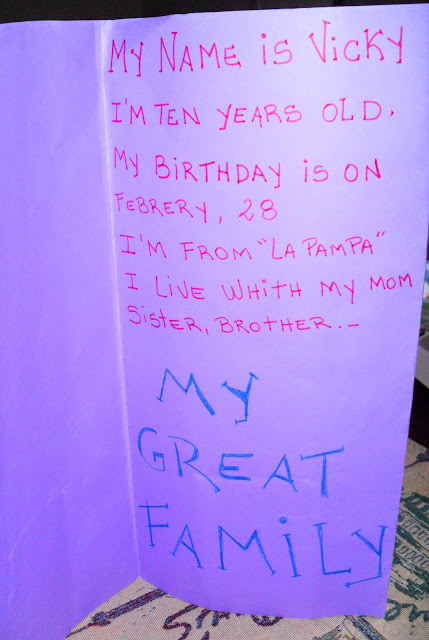 My Name is Vicky
I'm ten years old.
My Birthday is on
Febrery, 28
I'm from "La Pampa"
I live whith my mom
Sister, Brother.-
My
Great
Family